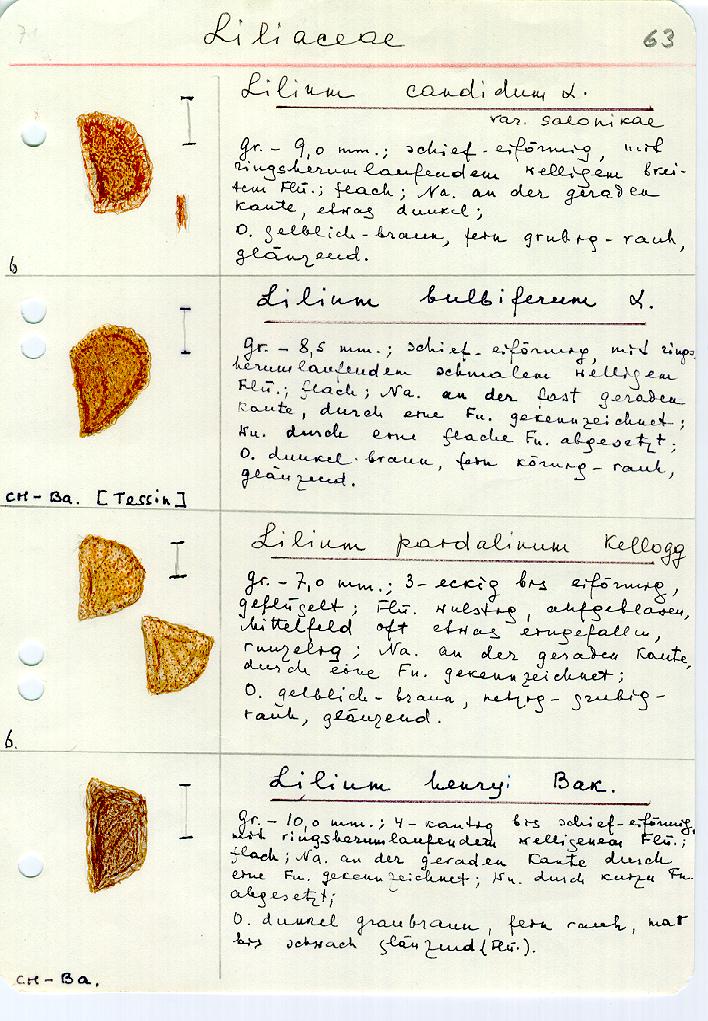 71
Liliaceae
63
Lilium candidum L.
var. salonikae
Gr. - 9,0 mm.; schief-eiförmig, mit
ringsherumlaufendem welligem brei-
tem Flü.; flach; Na. an der geraden
Kante, etwas dunkel;
O. gelblich-braun, fein grubig-rauh,
glänzend.
6
Lilium bulbiferum L.
Gr. - 8,5 mm.; schief-eiförmig, mit rings-
herumlaufendem schmalem welligem
Flü.; flach; Na. an der fast geraden
Kante, durch eine Fu. gekennzeichnet;
Wu. durch eine flache Fu. abgesetzt;
O. dunkel-braun, fein körnig-rauh,
glänzend.
CH-Ba. [Tessin]
Lilium pardalinum Kellogg
Gr. - 7,0 mm.; 3-eckig bis eiförmig,
geflügelt; Flü. wulstig, aufgeblasen,
Mittelfeld oft etwas eingefallen,
runzelig; Na. an der geraden Kante,
durch eine Fu. gekennzeichnet;
O. gelblich-braun, netzig-grubig-
rauh, glänzend.
6.
Lilium henryi Bak.
Gr. - 10,0 mm.; 4-kantig bis schief-eiförmig,
mit ringsherumlaufendem welligenem Flü.;
flach; Na. an der geraden Kante durch
eine Fu. gekennzeichnet; Wu. durch kurze Fu.
abgesetzt;
O. dunkel graubraun, fein rauh, mat
bis schwach glänzend (Flü.).
CH-Ba.